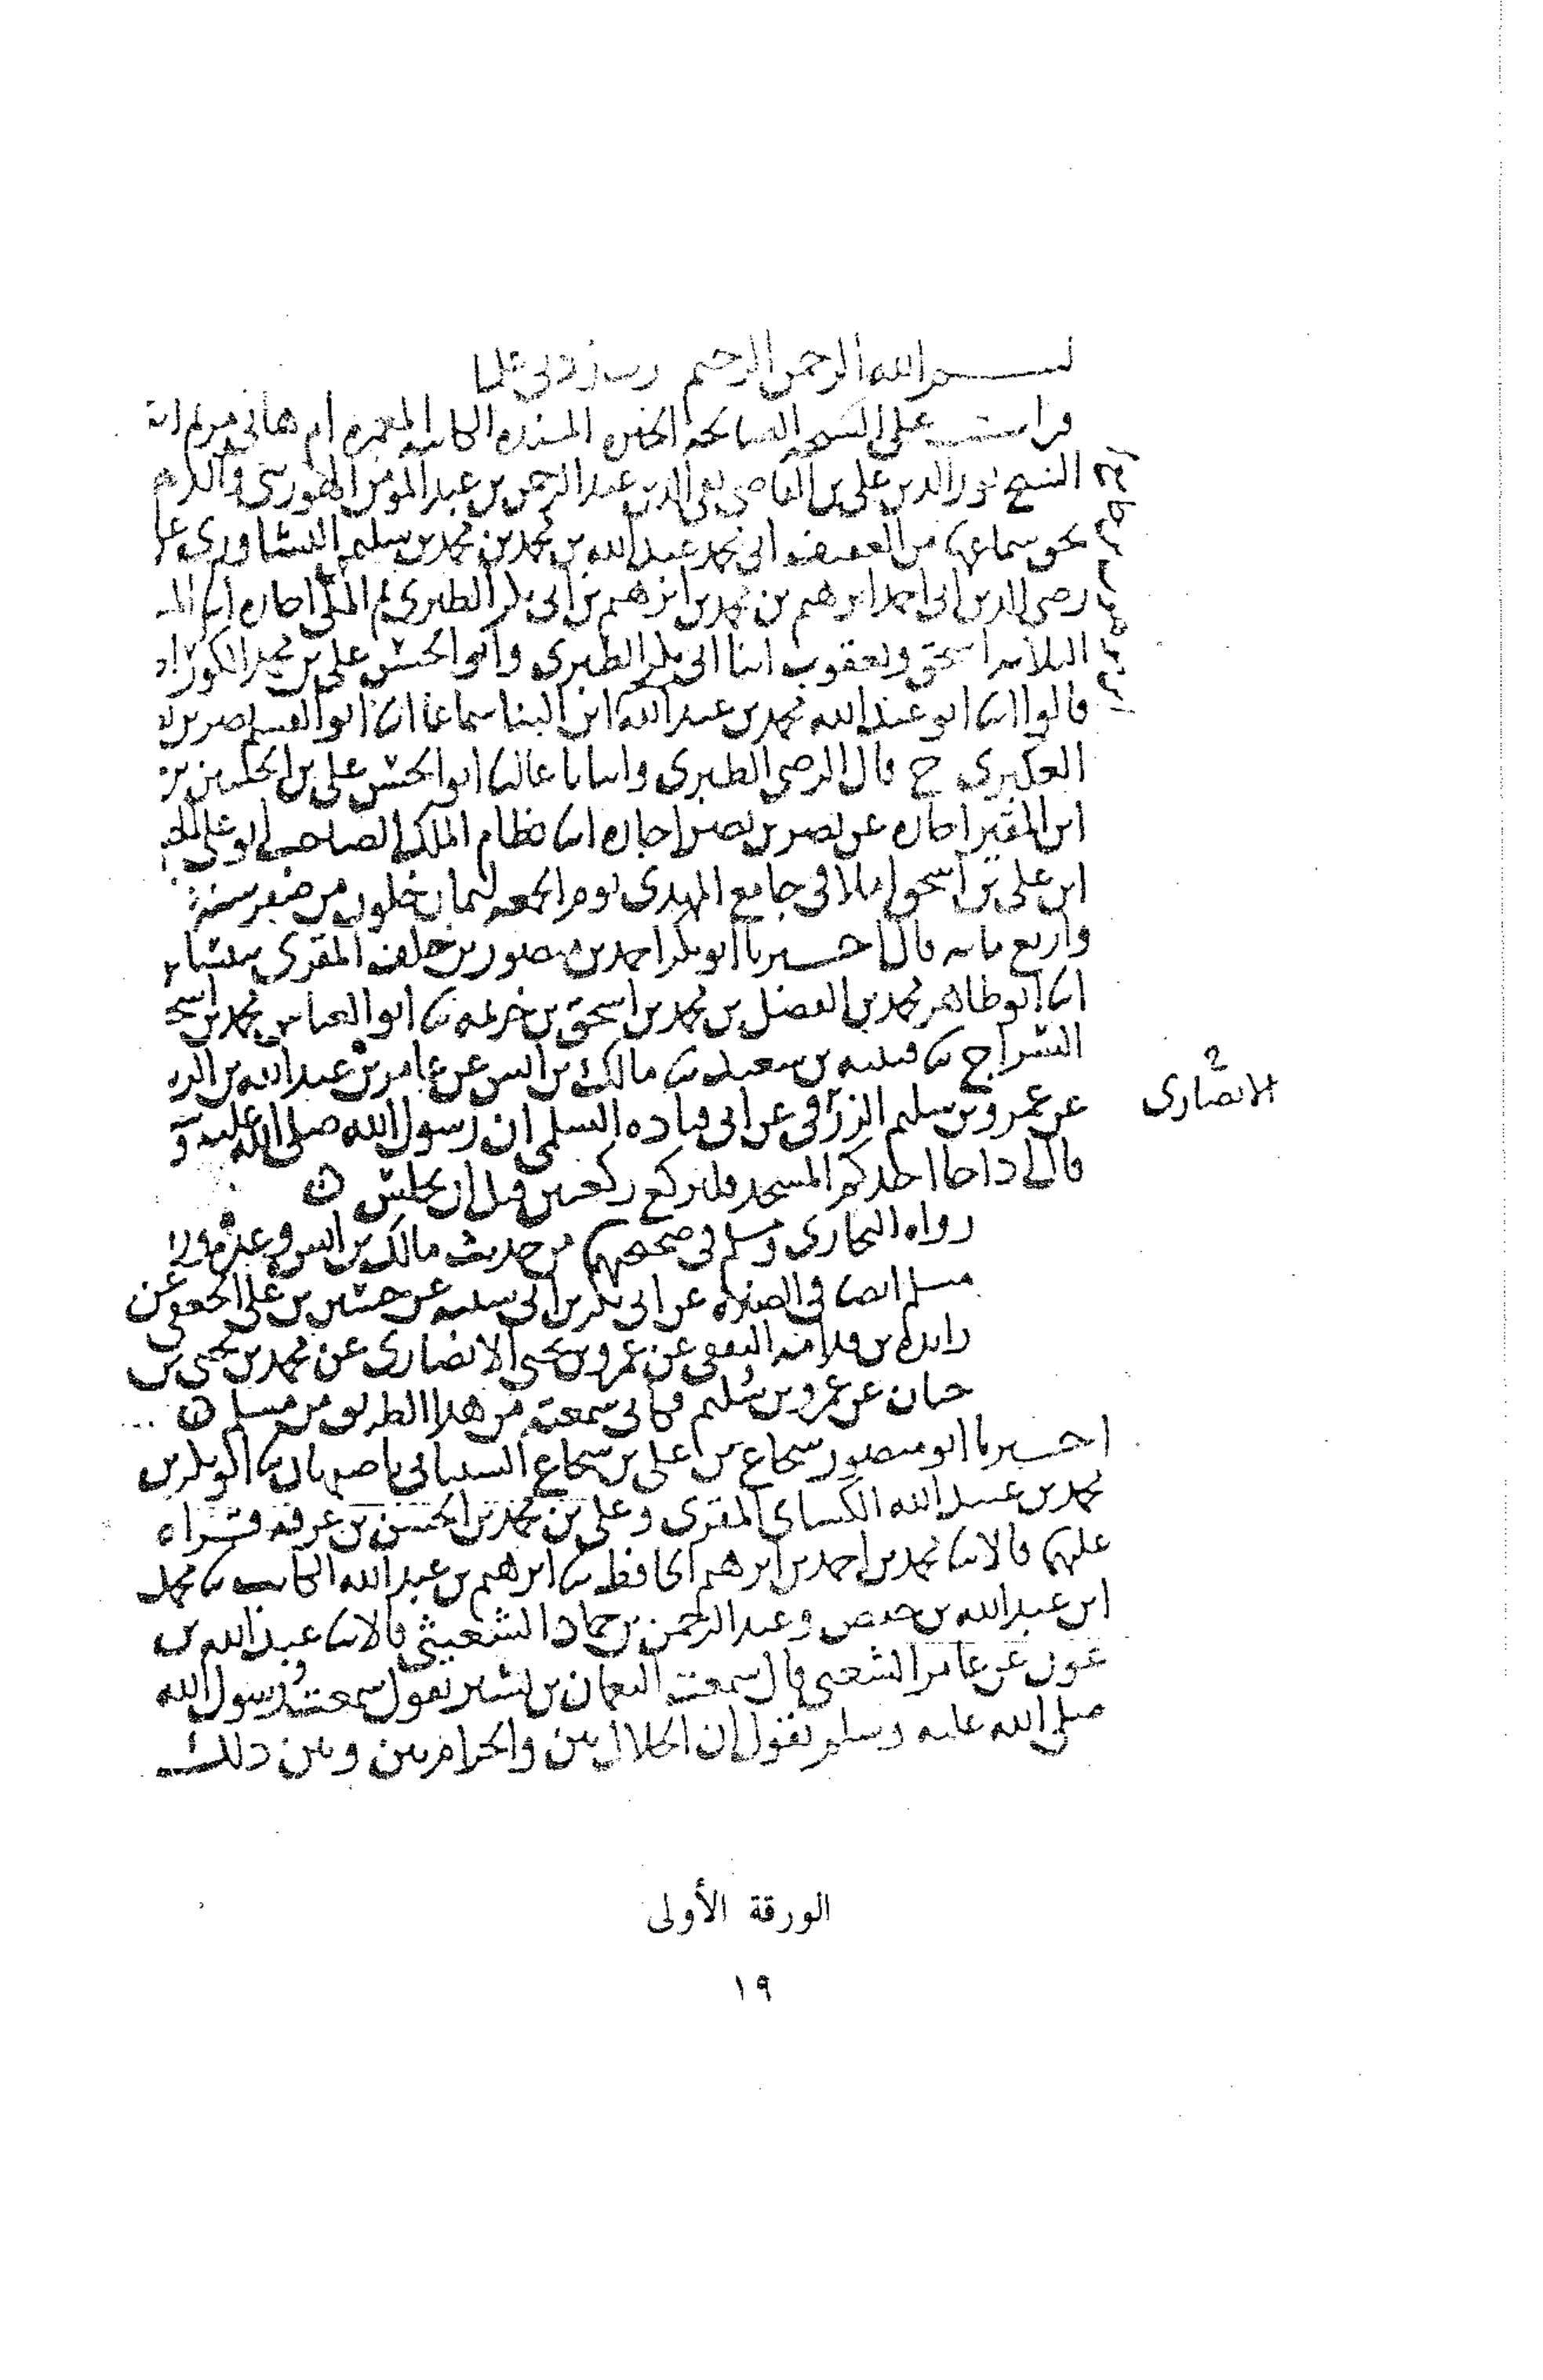 بسم الله الرحمن الرحيم رب زدني علما
قرات على الشيخه الصالحه الخيره المسنده الكاتبه المعمره ام هاني مريم ابنة
الشيخ نور الدين علي بن القاضي تقي الدين عبد الرحمن بن عبد المومن الهوريني
بحق سماعها من العفيف ابي محمد عبد الله بن محمد بن محمد بن سليمن النشاوري
رضي الدين ابي احمد ابرهيم بن محمد بن ابرهيم بن ابي بكر الطبري المكي اجازه انا
الثلاثه اسحق ويعقوب ابنا ابي بكر الطبري وابو الحسن علي بن محمد
قالوا انا ابو عبد الله محمد بن عبد الله ابن البنا سماعا انا ابو الفتح نصر بن
العكبري ح قال الرضي الطبري وانبانا عاليا ابو الحسن علي بن الحسين بن
ابن المقير اجازه عن نصر بن نصر اجازه انا نظام الملك الصاحب ابو علي
ابن علي بن اسحق املا في جامع المهدي يوم الجمعه لثمان خلون من صفر سنة
واربع مايه قال اخبرنا ابو بكر احمد بن منصور بن خلف المقري
انا ابو طاهر محمد بن الفضل بن محمد بن اسحق بن خزيمه نا ابو العباس محمد بن
السراج نا قتيبه بن سعيد نا مالك بن انس عن عامر بن عبد الله بن
عن عمرو بن سليم الزرقي عن ابي قتاده السلمي ان رسول الله صلى الله عليه و
الانصاري
قال اذا جا احدكم المسجد فليركع ركعتين قبل ان يجلس
رواه البخاري ومسلم في صحيحيهما من حديث مالك بن انس وغيره
مسلم ايضا في الصلاه عن ابي بكر بن ابي شيبه عن حسين بن علي الجعفي عن
زايده بن قدامه الثقفي عن عمرو بن يحيى الانصاري عن محمد بن يحيى بن
حبان عن عمرو بن سليم فكاني سمعته من هذا الطريق من مسلم
اخبرنا ابو منصور شجاع بن علي بن شجاع الشيباني باصبهان نا ابو بكر بن
محمد بن عبد الله الكساي المقري وعلي بن محمد بن الحسن بن عرفه قراه
عليهما قالا نا محمد بن احمد بن ابرهيم الحافظ نا ابرهيم بن عبد الله الكاتب نا محمد
ابن عبد الله بن حفص وعبد الرحمن بن حماد الشعيثي قالا نا عبد الله بن
عون عن عامر الشعبي قال سمعت النعمان بن بشير يقول سمعت رسول الله
صلى الله عليه وسلم يقول ان الحلال بين والحرام بين وبين ذلك
الورقة الأولى
١٩